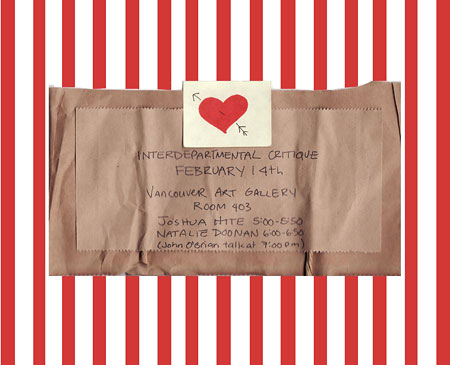 INTERDEPARTMENTAL CRITIQUE
FEBRUARY 14th
VANCOUVER ART GALLERY
ROOM 403
JOSHUA HITE 5:00-5:50
NATALIE DOONAN 6:00-6:50
(John O'Brian talk at 7:00 pm)